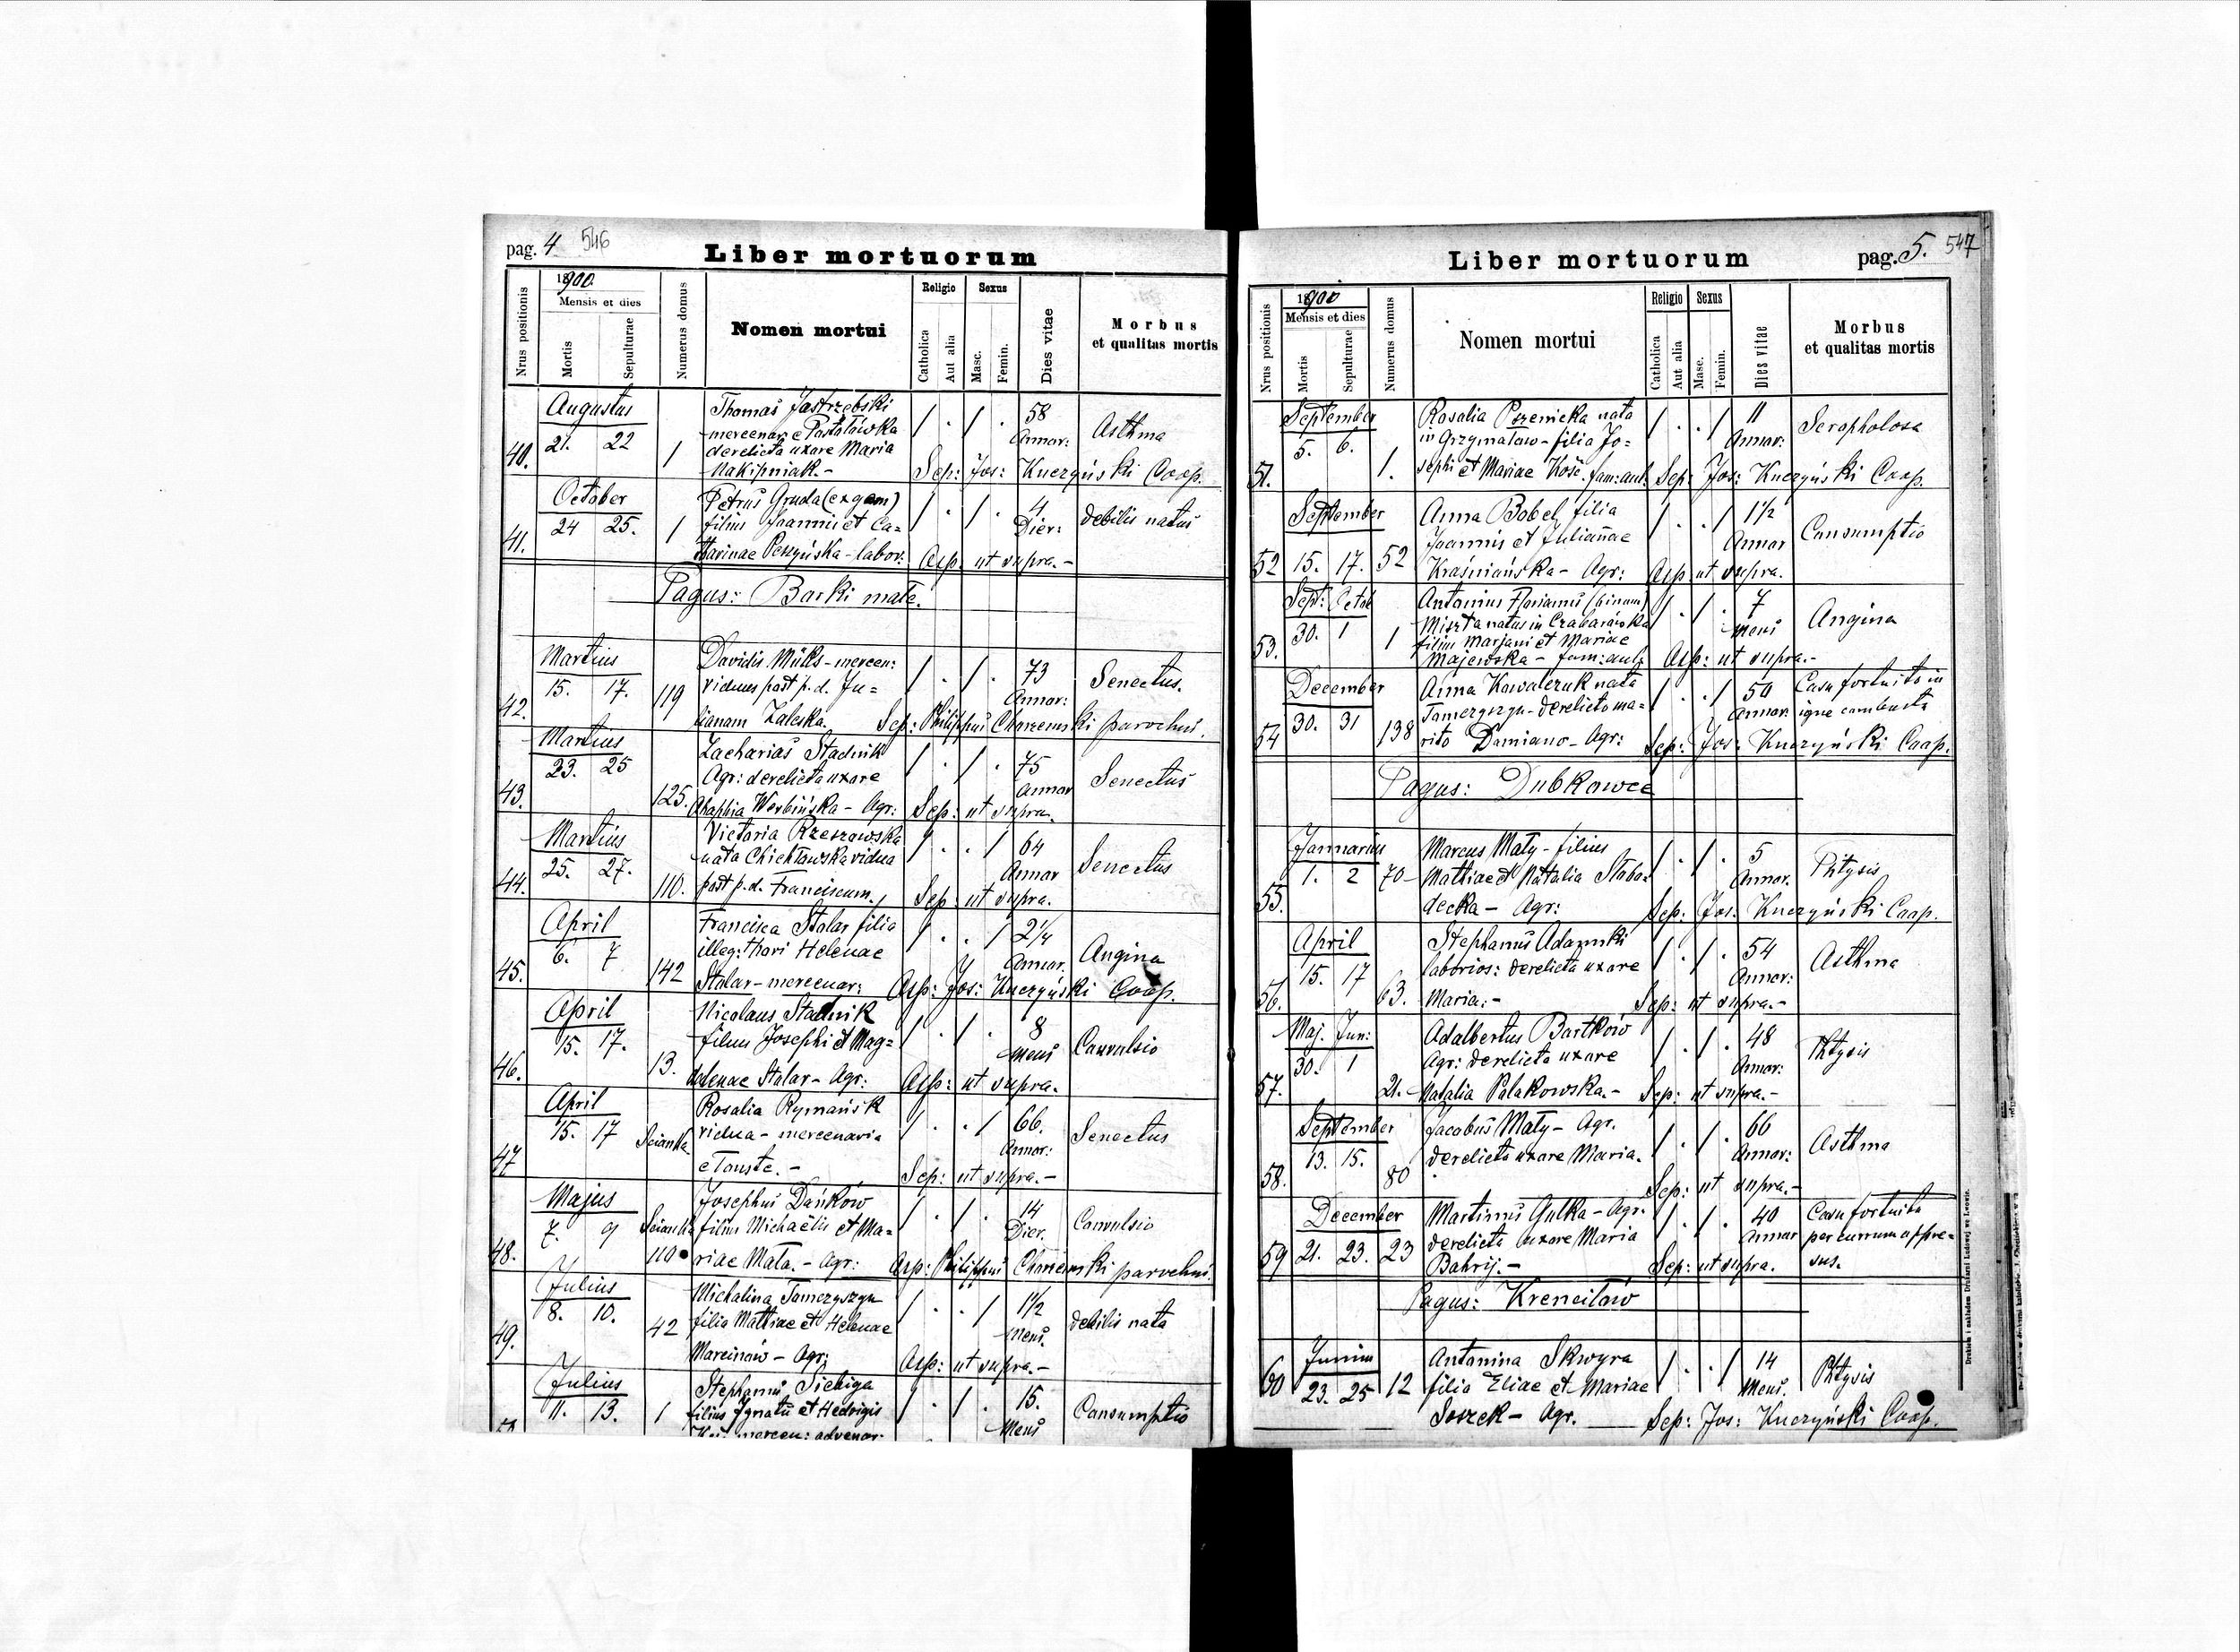 pag. 4 546
Liber mortuorum
1900
Nrus positionis
Mensis et dies
Mortis
Sepulturae
Numerus domus
Nomen mortui
Religio
Catholica
Aut alia
Sexus
Masc.
Femin.
Dies vitae
Morbus
et qualitas mortis
Augustus
40. 21. 22 1
Thomas Jastrzębski
mercenar: e Postołówka
derelicta uxore Maria
Nakipniak.-
58
Annor:
Asthma
Sep: Jos: Kuczyński Coop.
October
41. 24 25. 1
Petrus Gruda (ex gem)
filius Joannis et Ca=
tharinae Peszyńska - labor:
4
Dier:
debilis natus
Asp: ut supra.-
Pagus: Borki małe.
Martius
42. 15. 17. 119
Davidis Müks - mercen:
viduus post p.d. Ju=
lianam Zaleska.
73
Annor:
Senectus.
Sep: Philippus Charzewski parochus.
Martius
43. 23. 25 125.
Zacharias Stadnik
Agr: derelicta uxore
Ahaphia Werbińska - Agr:
75
Annor
Senectus
Sep: ut supra.
Martius
44. 25. 27. 110.
Victoria Rzeszowska
nata Chichłowska vidua
post p.d. Franciscum.
64
Annor
Senectus
Sep: ut supra.
April
45. 6. 7 142
Francisca Stolar filia
illeg: thori Helenae
Stolar - mercenar:
2 1/4
Annor.
Angina
Asp: Jos: Kuczyński Coop.
April
46. 15. 17. 13.
Nicolaus Stadnik
filius Josephi et Mag=
dalenae Stolar - Agr:
8
Mens
Convulsio
Asp: ut supra.
April
47 15. 17 Scianka
Rosalia Rymańsk
vidua - mercenaria
e Touste.-
66.
Annor:
Senectus
Sep: ut supra.-
Majus
48. 7. 9 Scianka
110
Josephus Dańków
filius Michaëlis et Ma=
riae Mała. - Agr:
14
Dier.
Convulsio
Asp: Philippus Charzewski parochus.
Julius
49. 8. 10. 42
Michalina Tomczyszyn
filia Mathiae et Helenae
Marcinów - Agr:
1 1/2
Mens.
debilis nata
Asp: ut supra.-
Julius
11. 13. 1
Stephanus Sichiga
filius Ignatii et Hedvigis
mercen: advenar.
15.
Mens
Consumptio
Liber mortuorum
pag. 5. 547
1900
Nrus positionis
Mensis et dies
Mortis
Sepulturae
Numerus domus
Nomen mortui
Religio
Catholica
Aut alia
Sexus
Masc.
Femin.
Dies vitae
Morbus
et qualitas mortis
September
51. 5. 6. 1.
Rosalia Pszenicka nata
in Grzymałow - filia Jo=
sephi et Mariae Kość. fam: aul.
11
Annor:
Scropholosa
Sep: Jos: Kuczyński Coop.
September
52 15. 17. 52
Anna Bobel filia
Joannis et Julianae
Kraśniańska - Agr:
1 1/2
Annor
Consumptio
Asp ut supra.
Sept: Octob
53. 30. 1 1
Antonius Florianus (binom)
Miszta natus in Czabarówka
filius Marjani et Mariae
Majewska - fam: aul:
7
Mens
Angina
Asp: ut supra.-
December
54 30. 31 138
Anna Kowalczuk nata
Tomczyszyn - derelicto ma=
rito Damiano - Agr:
50
Annor:
Casu fortuito in
igne combusta
Sep: Jos: Kuczyński Coop.
Pagus: Dubkowce
Januarius
55. 1. 2 70
Marcus Mały - filius
Mathiae et Natalia Słobo=
decka - Agr:
5
Annor.
Phtysis
Sep: Jos: Kuczyński Coop.
April
56. 15. 17 63.
Stephanus Adamski
laborios: derelicta uxore
Maria.-
54
Annor:
Asthma
Sep: ut supra.-
Maj. Jun:
57. 30. 1 21.
Adalbertus Bartków
Agr: derelicta uxore
Natalia Polakowska.-
48
Annor:
Phtysis
Sep: ut supra.-
September
58. 13. 15. 80
Jacobus Mały - Agr.
derelicta uxore Maria.
66
Annor:
Asthma
Sep: ut supra.-
December
59 21. 23. 23
Martinus Gulka - Agr.
derelicta uxore Maria
Bahrij.-
40
Annor
Casu fortuito
per currum oppre=
sus.
Sep: ut supra.
Pagus: Krencilów
Junius
60 23. 25 12
Antonina Skwyra
filia Eliae et Mariae
Soszek - Agr.
14
Mens.
Phtysis
Sep: Jos: Kuczyński Coop.
Drukiem i nakładem Drukarni Ludowej we Lwowie.